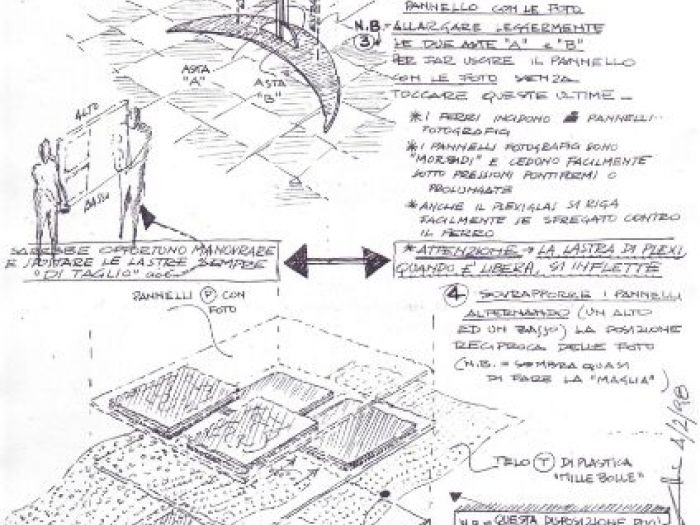 PANNELLO CON LE FOTO
N.B. = ALLARGARE LEGGERMENTE
3 LE DUE ASTE "A" e "B"
PER FAR USCIRE IL PANNELLO
CON LE FOTO SENZA
TOCCARE QUESTE ULTIME _
* I FERRI INCIDONO PANNELLI
FOTOGRAFIG
* I PANNELLI FOTOGRAFIG SONO
"MORBIDI" E CEDONO FACILMENTE
SOTTO PRESSIONI PONTIFORMI O
PROLUNGATE
* ANCHE IL PLEXIGLAS SI RIGA
FACILMENTE SE SFREGATO CONTRO
IL FERRO
* ATTENZIONE → LA LASTRA DI PLEXI,
QUANDO È LIBERA, SI INFLETTE
ASTA
"A"
ASTA
"B"
ALTO
BASSO
SAREBBE OPPORTUNO MANOVRARE
E SPOSTARE LE LASTRE SEMPRE
"DI TAGLIO"
4 SOVRAPPORRE I PANNELLI
ALTERNANDO (UN ALTO
ED UN BASSO) LA POSIZIONE
RECIPROCA DELLE FOTO
(N.B. = SEMBRA QUASI
DI FARE LA "MAGLIA")
PANNELLI P CON
FOTO
TELO T DI PLASTICA
"MILLE BOLLE"
4/2/98
N.B. = QUESTA DISPOSIZIONE PUÒ